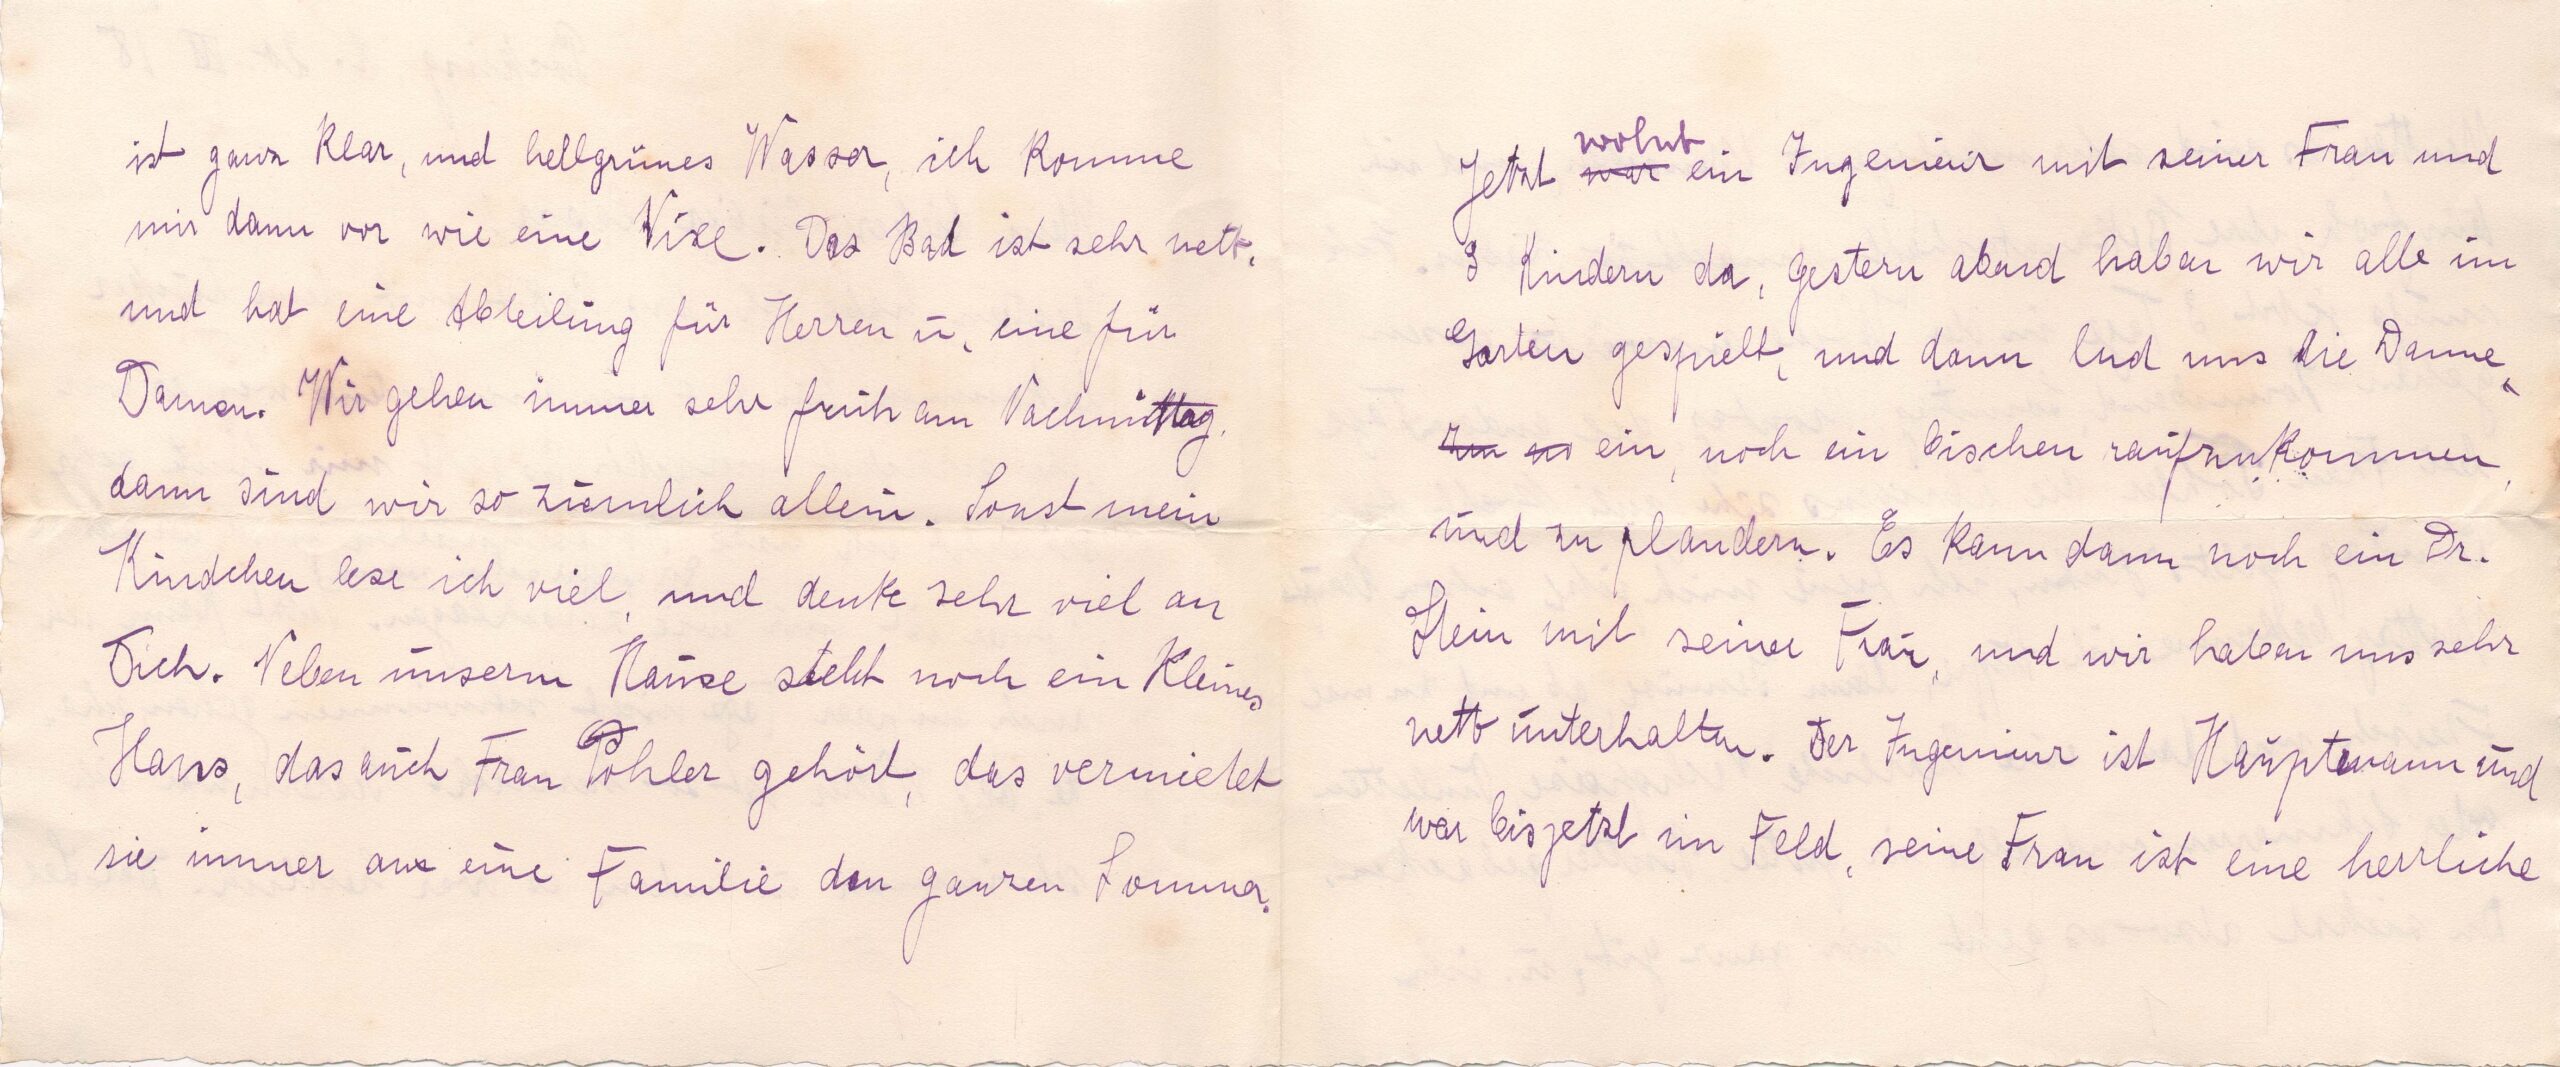 ist ganz klar, und hellgrünes Wasser, ich komme
mir dann vor wie eine Nixe. Das Bad ist sehr nett,
und hat eine Abteilung für Herren u. eine für
Damen. Wir gehen immer sehr früh am Nachmittag,
dann sind wir so ziemlich allein. Sonst mein
Kindchen lese ich viel, und denke sehr viel an
Dich. Neben unserm Hause steht noch ein kleines
Haus, das auch Frau Pöhler gehört, das vermietet
sie immer an eine Familie den ganzen Sommer.
Jetzt war wohnt ein Ingenieur mit seiner Frau und
3 Kindern da, gestern abend haben wir alle im
Garten gespielt, und dann lud uns die Dame,
zu no ein, noch ein bischen raufzukommen,
und zu plaudern. Es kam dann noch ein Dr.
Stein mit seiner Frau, und wir haben uns sehr
nett unterhalten. Der Ingenieur ist Hauptmann und
war bis jetzt im Feld, seine Frau ist eine herrliche